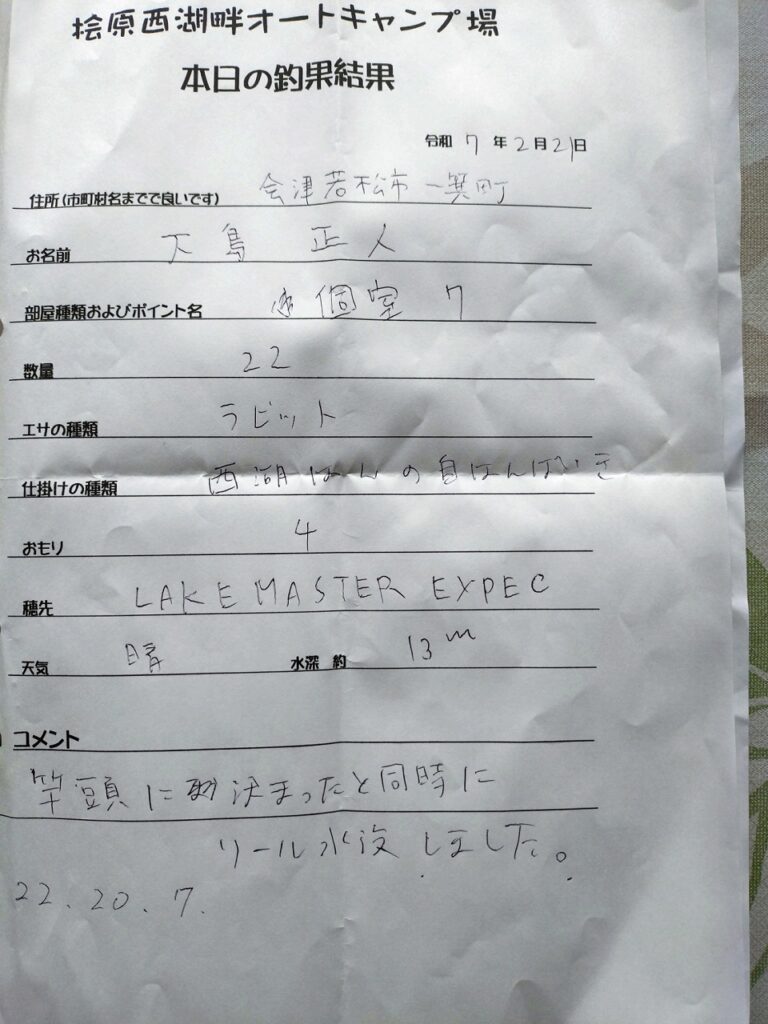 桧原西湖畔オートキャンプ場
本日の釣果結果
令和 7 年 2 月 21 日
住所(市町村名までで良いです) 会津若松市一箕町
お名前 大島 正人
部屋種類およびポイント名 個室 7
数量 22
エサの種類 ラビット
仕掛けの種類 西湖はんの自はんばいき
おもり 4
穂先 LAKE MASTER EXPEC
天気 晴 水深 約 13m
コメント
竿頭に決まったと同時に
リール水没しました。
22.20.7.